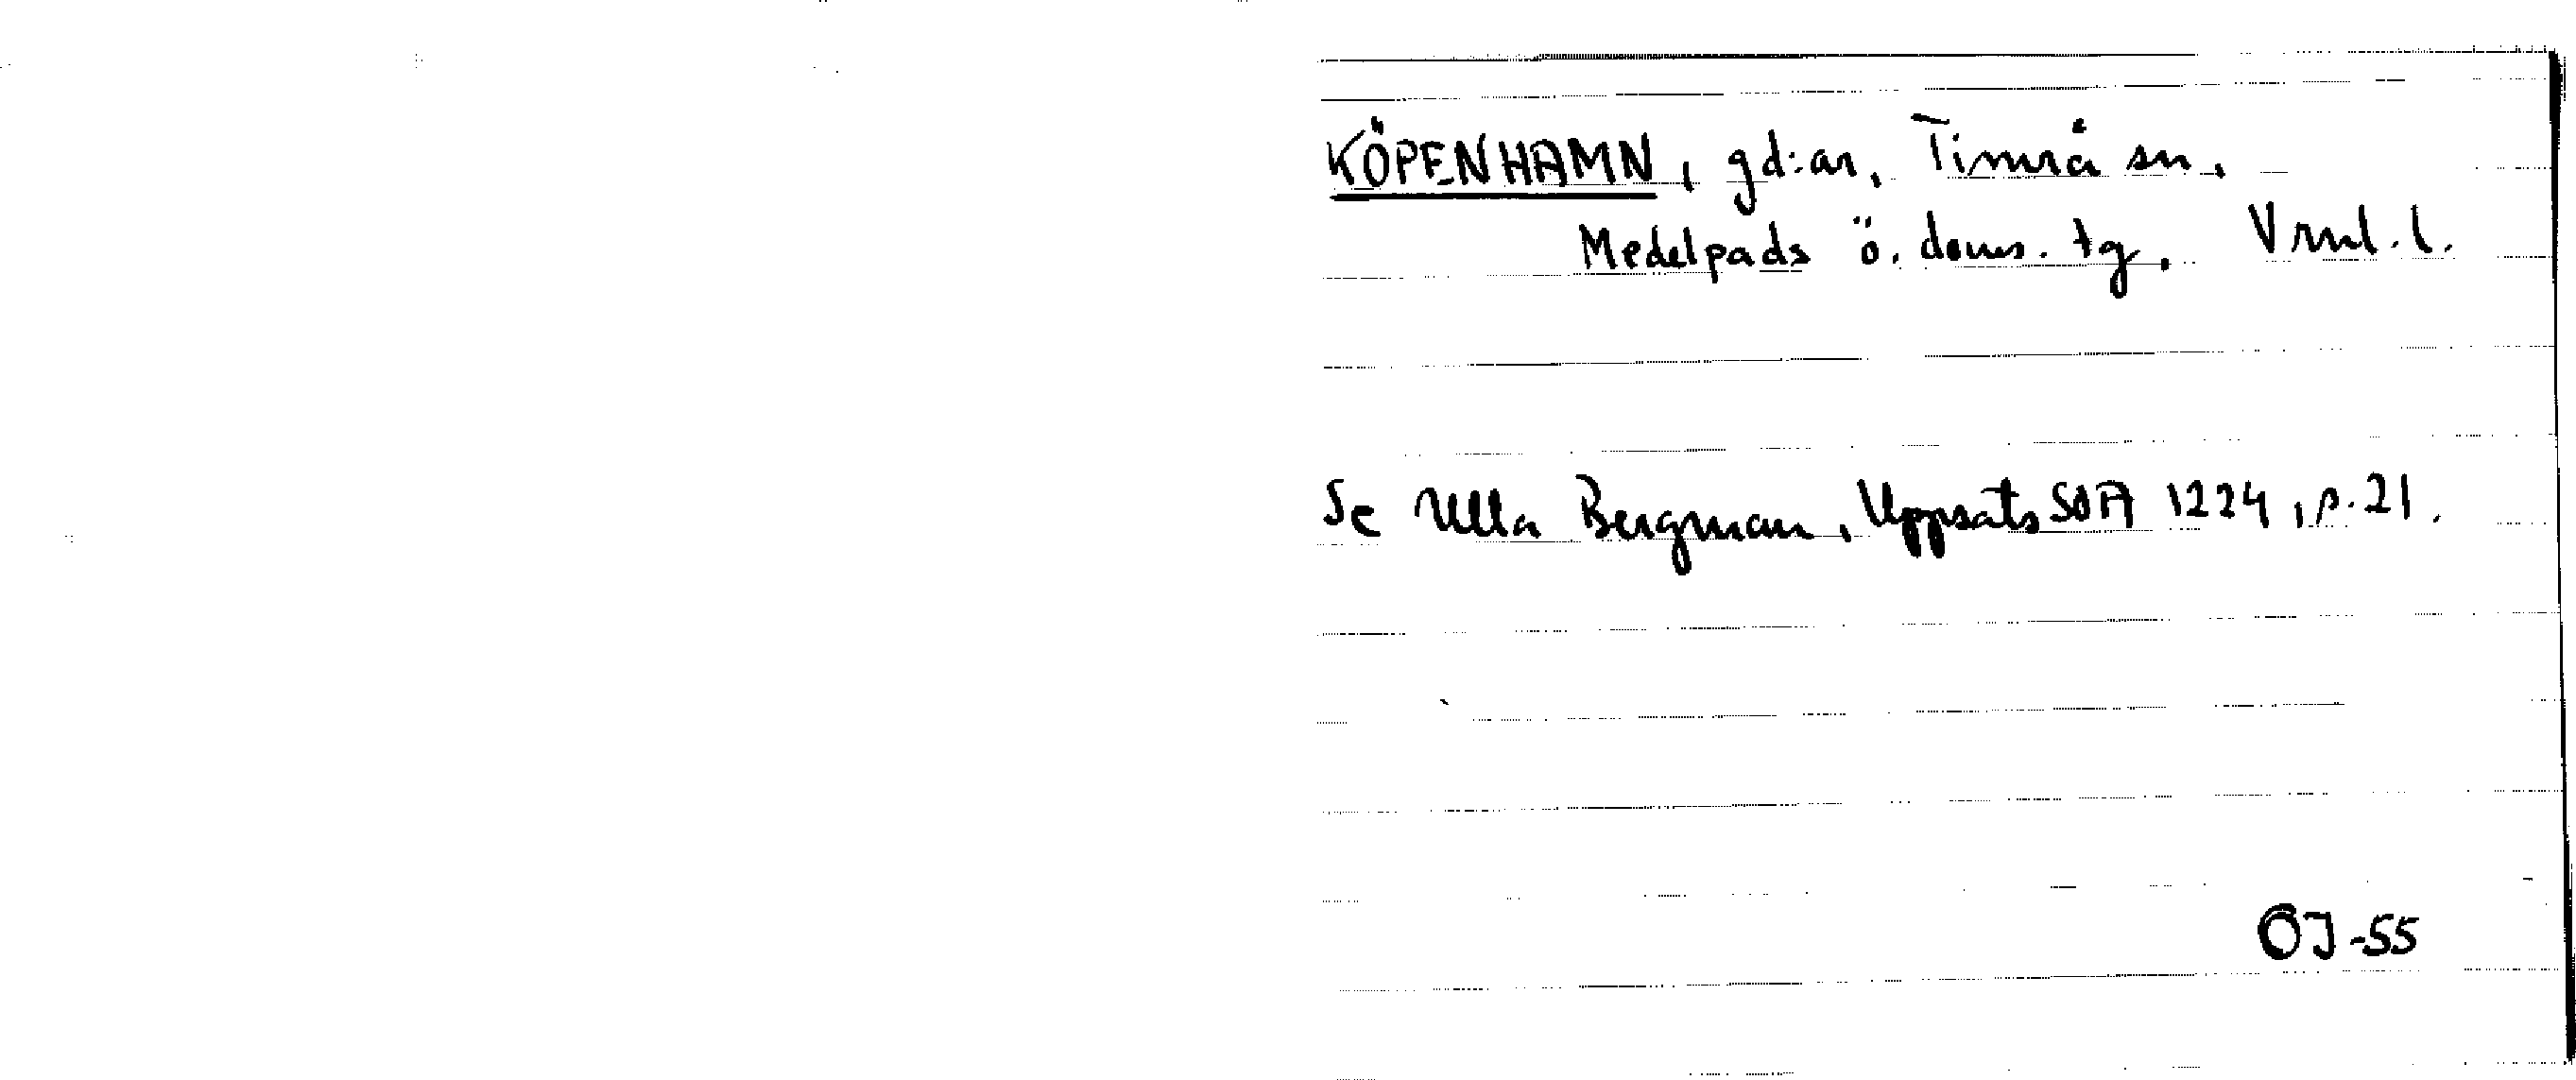 KÖPENHAMN, gd:ar, Timrå sn,
Medelpads ö. doms. tg. Vrnl. l.
Se Ulla Bergman, Uppsats SOA 1224, p. 21.
OJ-55